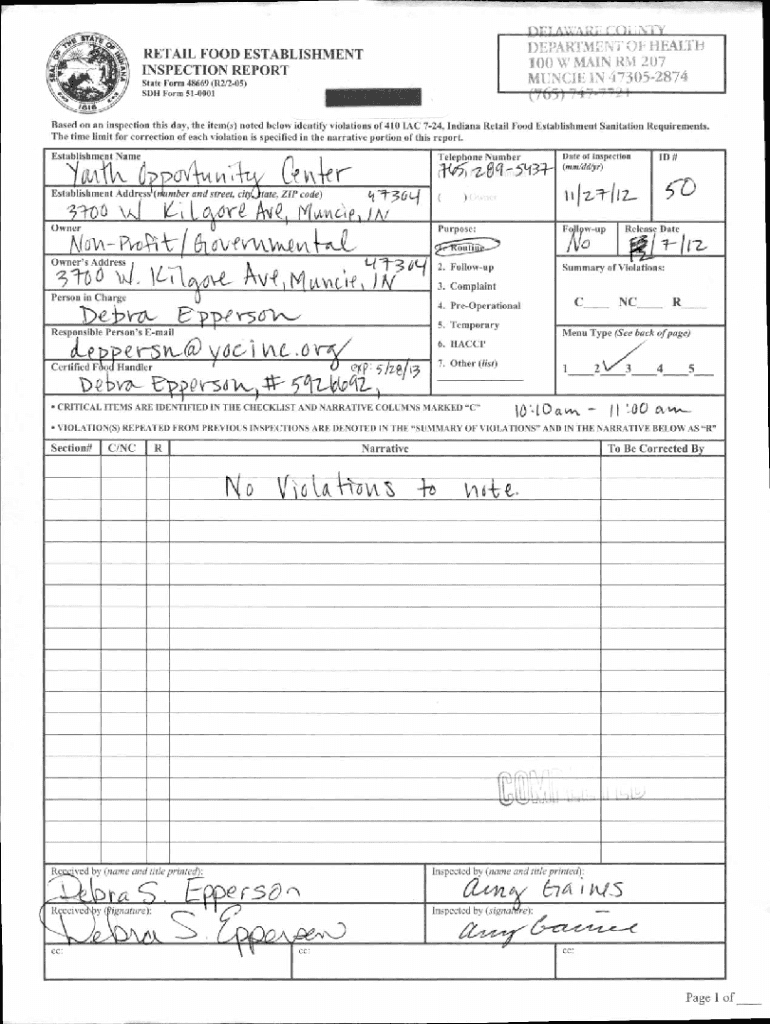 DELAWARE COUNTY
DEPARTMENT OF HEALTH
100 W MAIN RM 207
MUNCIE IN 47305-2874
(765) 747-7721
SEAL OF THE STATE OF INDIANA
1816
RETAIL FOOD ESTABLISHMENT
INSPECTION REPORT
State Form 48669 (R2/2-05)
SDH Form 51-0001
Based on an inspection this day, the item(s) noted below identify violations of 410 IAC 7-24, Indiana Retail Food Establishment Sanitation Requirements.
The time limit for correction of each violation is specified in the narrative portion of this report.
Establishment Name
Youth Opportunity Center
Telephone Number
765-289-5437
Date of Inspection
(mm/dd/yr)
11/27/12
ID #
50
Establishment Address (number and street, city, state, ZIP code)
47304
3700 W Kilgore Ave, Muncie, IN
( ) Owner
Owner
Non-Profit/Governmental
Purpose:
1. Routine
Follow-up
No
Release Date
/7/12
Owner's Address
47304
3700 W. Kilgore Ave, Muncie, IN
2. Follow-up
3. Complaint
Summary of Violations:
C____ NC____ R____
Person in Charge
Debra Epperson
4. Pre-Operational
5. Temporary
Responsible Person's E-mail
deppersn@yocinc.org
6. HACCP
Menu Type (See back of page)
Certified Food Handler
exp: 5/28/13
Debra Epperson, #
7. Other (list)
1____2✓3____4____5____
• CRITICAL ITEMS ARE IDENTIFIED IN THE CHECKLIST AND NARRATIVE COLUMNS MARKED "C"
10:10am - 11:00 am
• VIOLATION(S) REPEATED FROM PREVIOUS INSPECTIONS ARE DENOTED IN THE "SUMMARY OF VIOLATIONS" AND IN THE NARRATIVE BELOW AS "R"
Section# C/NC R Narrative To Be Corrected By
No Violations to note.
Received by (name and title printed):
Debra S. Epperson
Inspected by (name and title printed):
Amy Gaines
Received by (signature):
Debra S. Epperson
Inspected by (signature):
Amy Gaines
cc: cc: cc:
Page 1 of ____